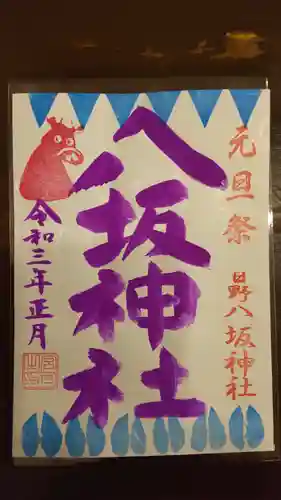 元旦祭
日野八坂神社
八坂神社
令和三年正月